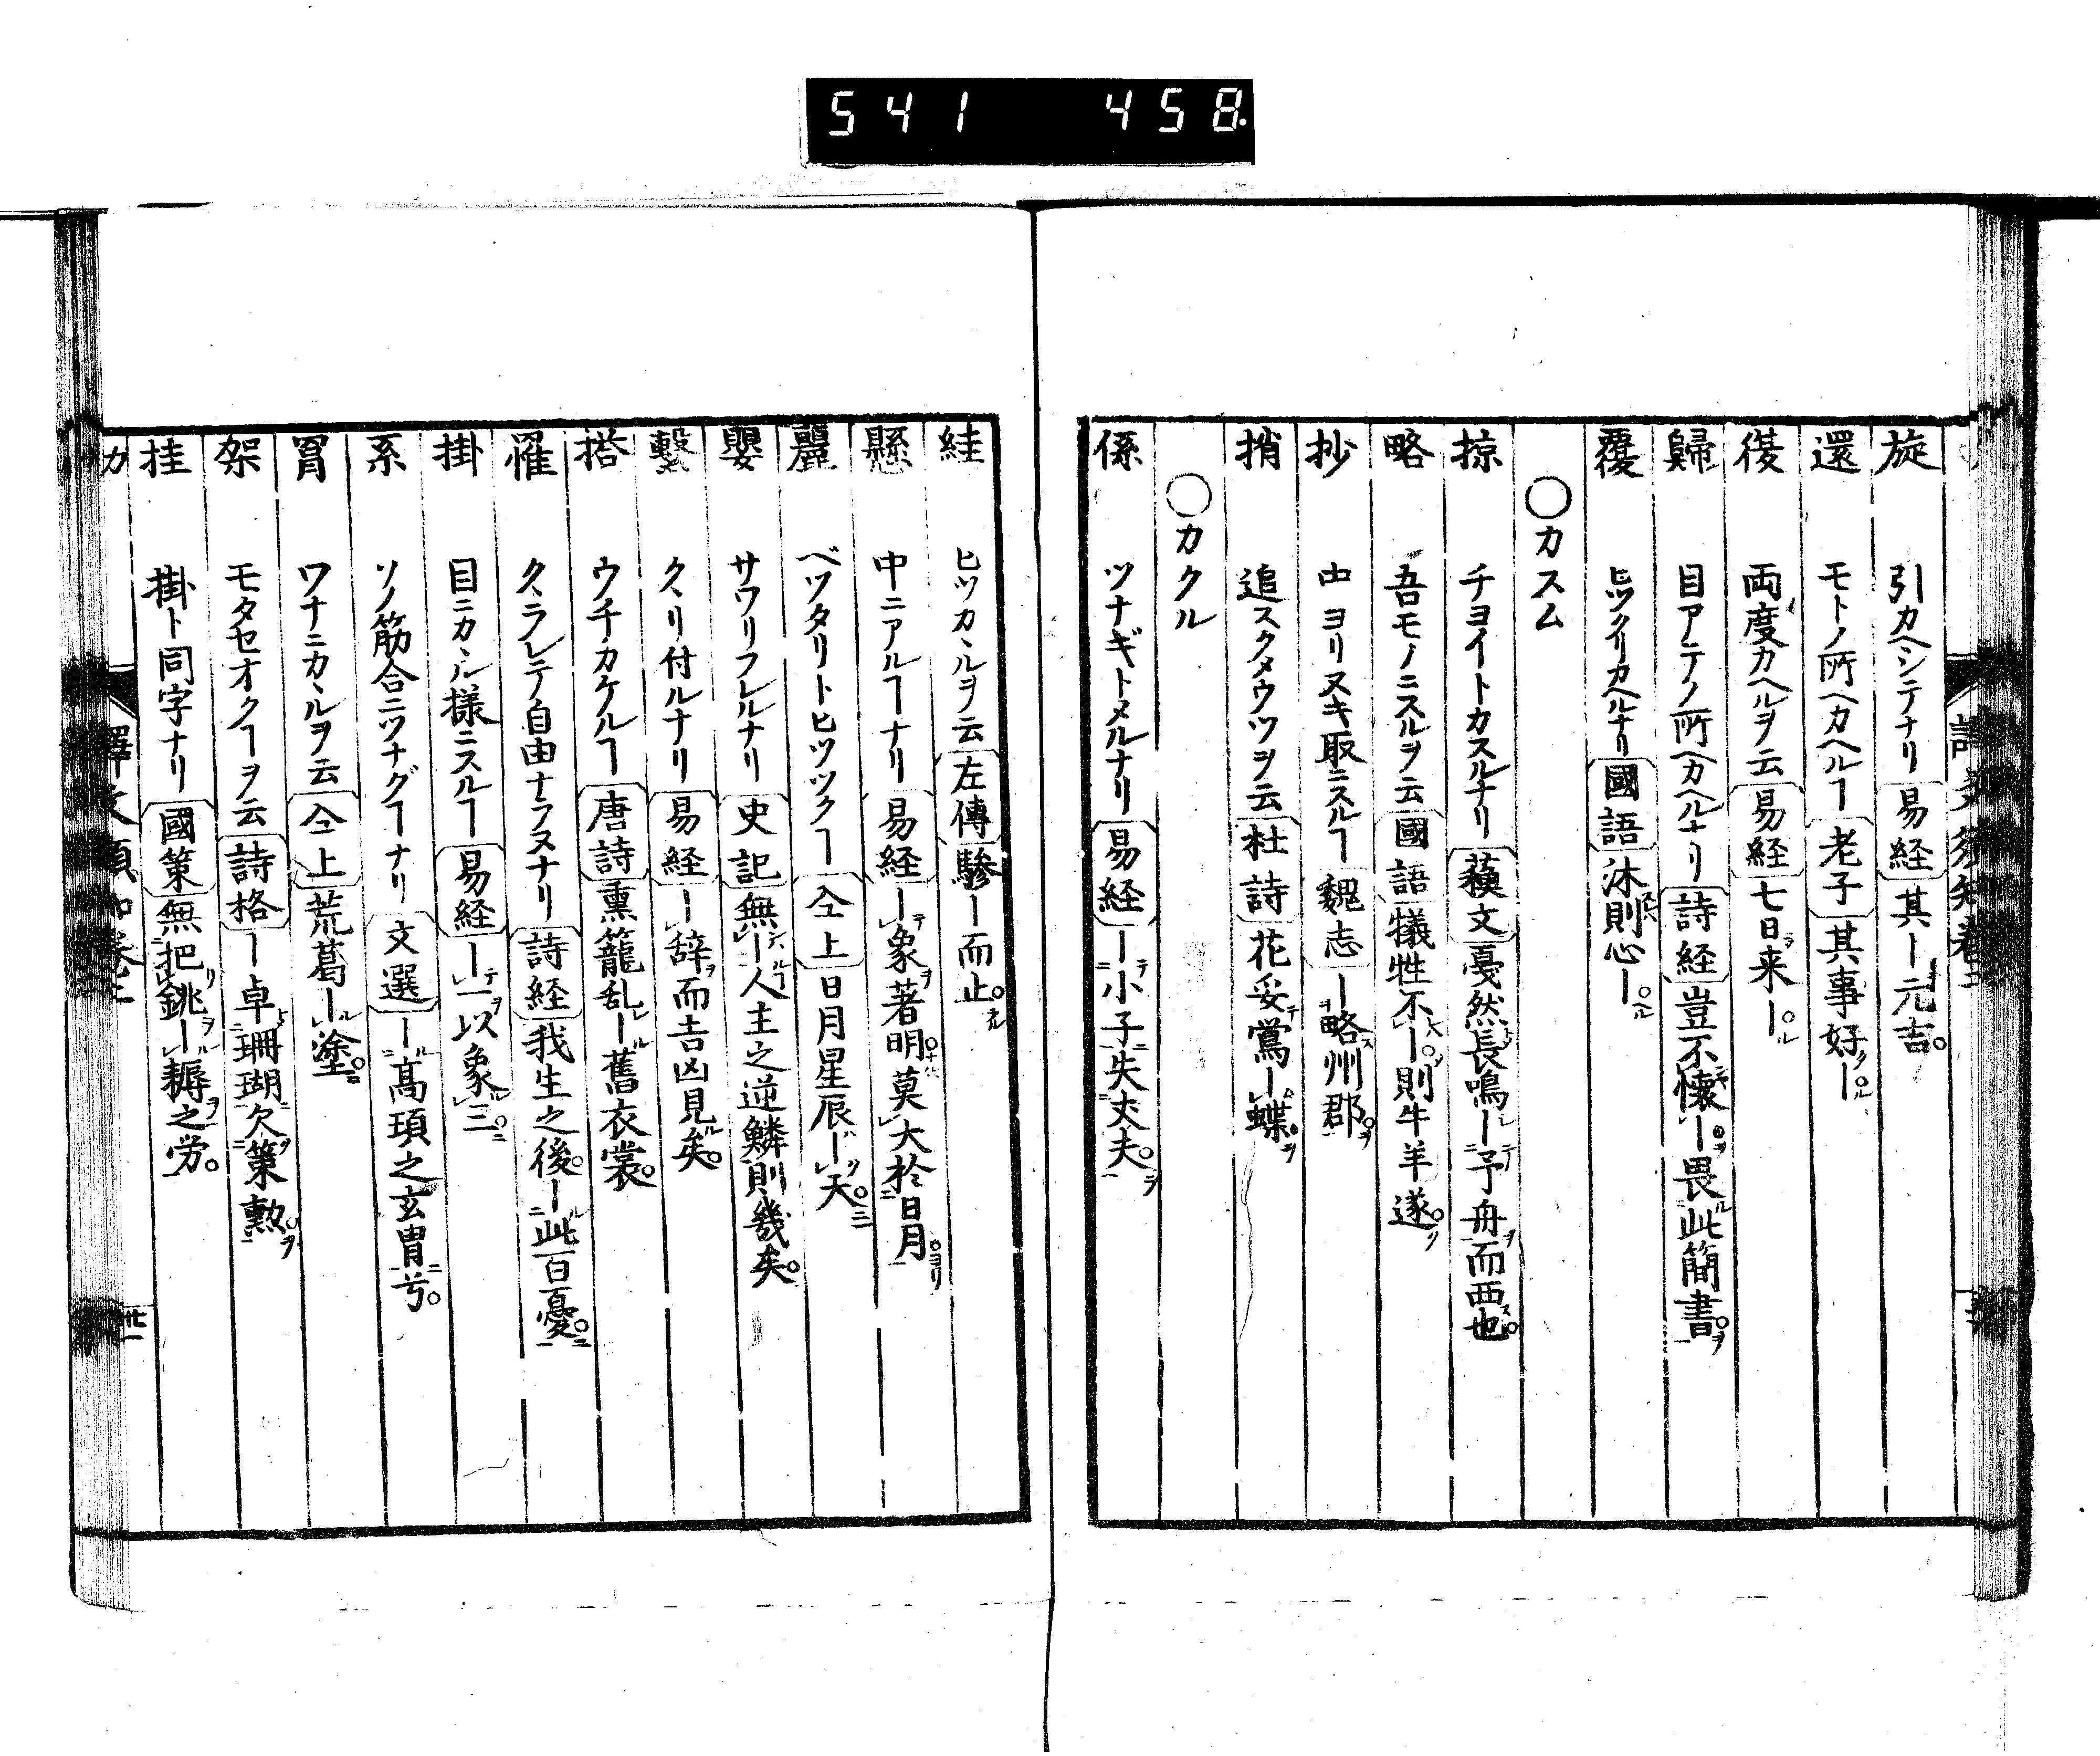 541 458.
旋 引カヘシテナリ 易経 其ー元吉
還 モトノ所ヘカヘルヿ 老子 其事好ー
復 両度カヘルヲ云 易経 七日来ー
歸 目アテノ所ヘカヘルナリ 詩経 豈不懐ー畏此簡書
覆 ヒツクリカヘルナリ 國語 沐則心ー
○カスム
掠 チヨイトカスルナリ 蘓文 戞然長鳴ー予舟而西也
略 吾モノニスルヲ云 國語 犠牲不ー則牛羊遂
抄 中ヨリヌキ取ニスルヿ 魏志 ー略州郡
捎 追スクタウツヲ云 杜詩 花妥鶯ー蝶
○カクル
係 ツナギトメルナリ 易経 ー小子失丈夫
絓 ヒツカヽルヲ云 左傳 驂ー而止
懸 中ニアルヿナリ 易経 ー象著明莫大於日月
麗 ベツタリトヒツツクヿ 仝上 日月星辰ー天
嬰 サワリフレルナリ 史記 無ー人主之逆鱗則幾矣
繫 クヽリ付ルナリ 易経 ー辞而吉凶見矣
搭 ウチカケルヿ 唐詩 熏籠乱ー舊衣裳
罹 クヽラレテ自由ナラヌナリ 詩経 我生之後ー此百憂
掛 目ニカヽル様ニスルヿ 易経 ー一以象三
系 ソノ筋合ニツナグヿナリ 文選 ー髙頊之玄胄兮
罥 ワナニカヽルヲ云 仝上 荒葛ー塗
架 モタセオクヿヲ云 詩格 ー卓珊瑚欠策勲
挂 掛ト同字ナリ 國策 無把銚ー耨之労
譯文須知巻